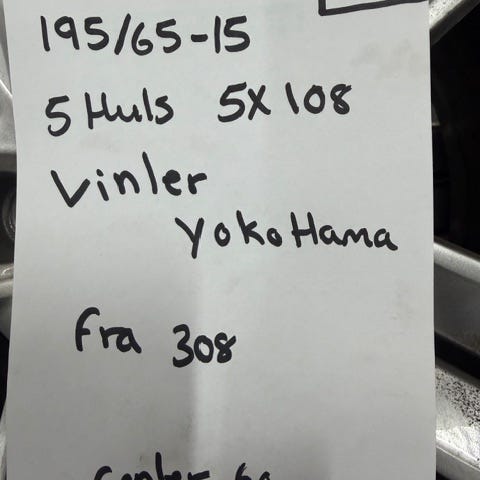 195/65-15
5 Huls 5X108
Vinler
YokoHama
Fra 308